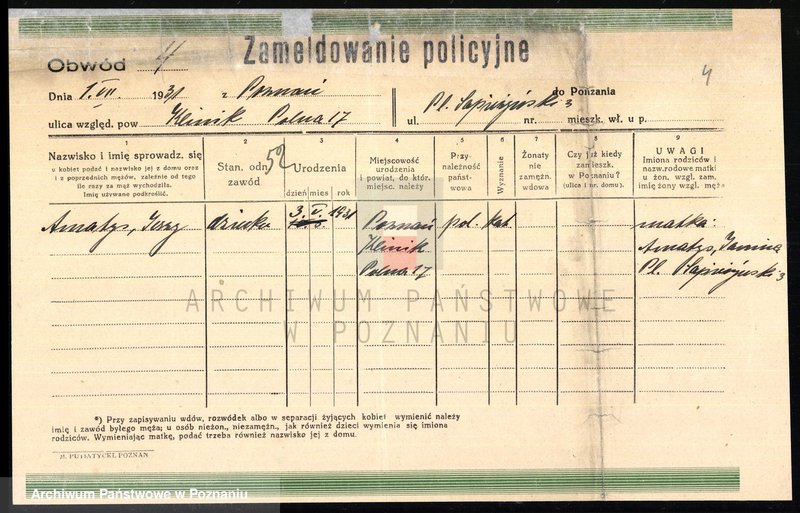 Zameldowanie policyjne
Obwód II
4
Dnia 1. VII. 1931 z Poznań do Poznania
ulica względ. pow Klinik Polna 17 ul. Pl. Sapieżyński nr. 3 mieszk. wł. u p.
52
1 2 3 4 5 6 7 8 9
Nazwisko i imię sprowadz. się
u kobiet podać i nazwisko jej z domu oraz
i z poprzednich mężów, zależnie od tego
ile razy za mąż wychodziła.
Imię używane podkreślić.
Stan. odn.
zawód
Urodzenia
dzień mies rok
Miejscowość
urodzenia
i powiat, do któr.
miejsc. należy
Przy-
należność
państ-
wowa
Wyznanie
Żonaty
nie
zamężn.
wdowa
Czy już kiedy
zamieszk.
w Poznaniu?
(ulica i nr. domu).
UWAGI
Imiona rodziców i
nazw.rodowe matki
u żon. wzgl. zam.
imię żony wzgl. męża
Amatys, Jerzy dziecko 3. V. 1931 Poznań pol. kat. matka:
Klinik Amatys, Janina
Polna 17 Pl. Sapieżyński 3
ARCHIWUM PAŃSTWOWE
W POZNANIU
*) Przy zapisywaniu wdów, rozwódek albo w separacji żyjących kobiet wymienić należy
imię i zawód byłego męża; u osób nieżon., niezamężn., jak również dzieci wymienia się imiona
rodziców. Wymieniając matkę, podać trzeba również nazwisko jej z domu.
M. PUTIATYCKI, POZNAŃ
Archiwum Państwowe w Poznaniu